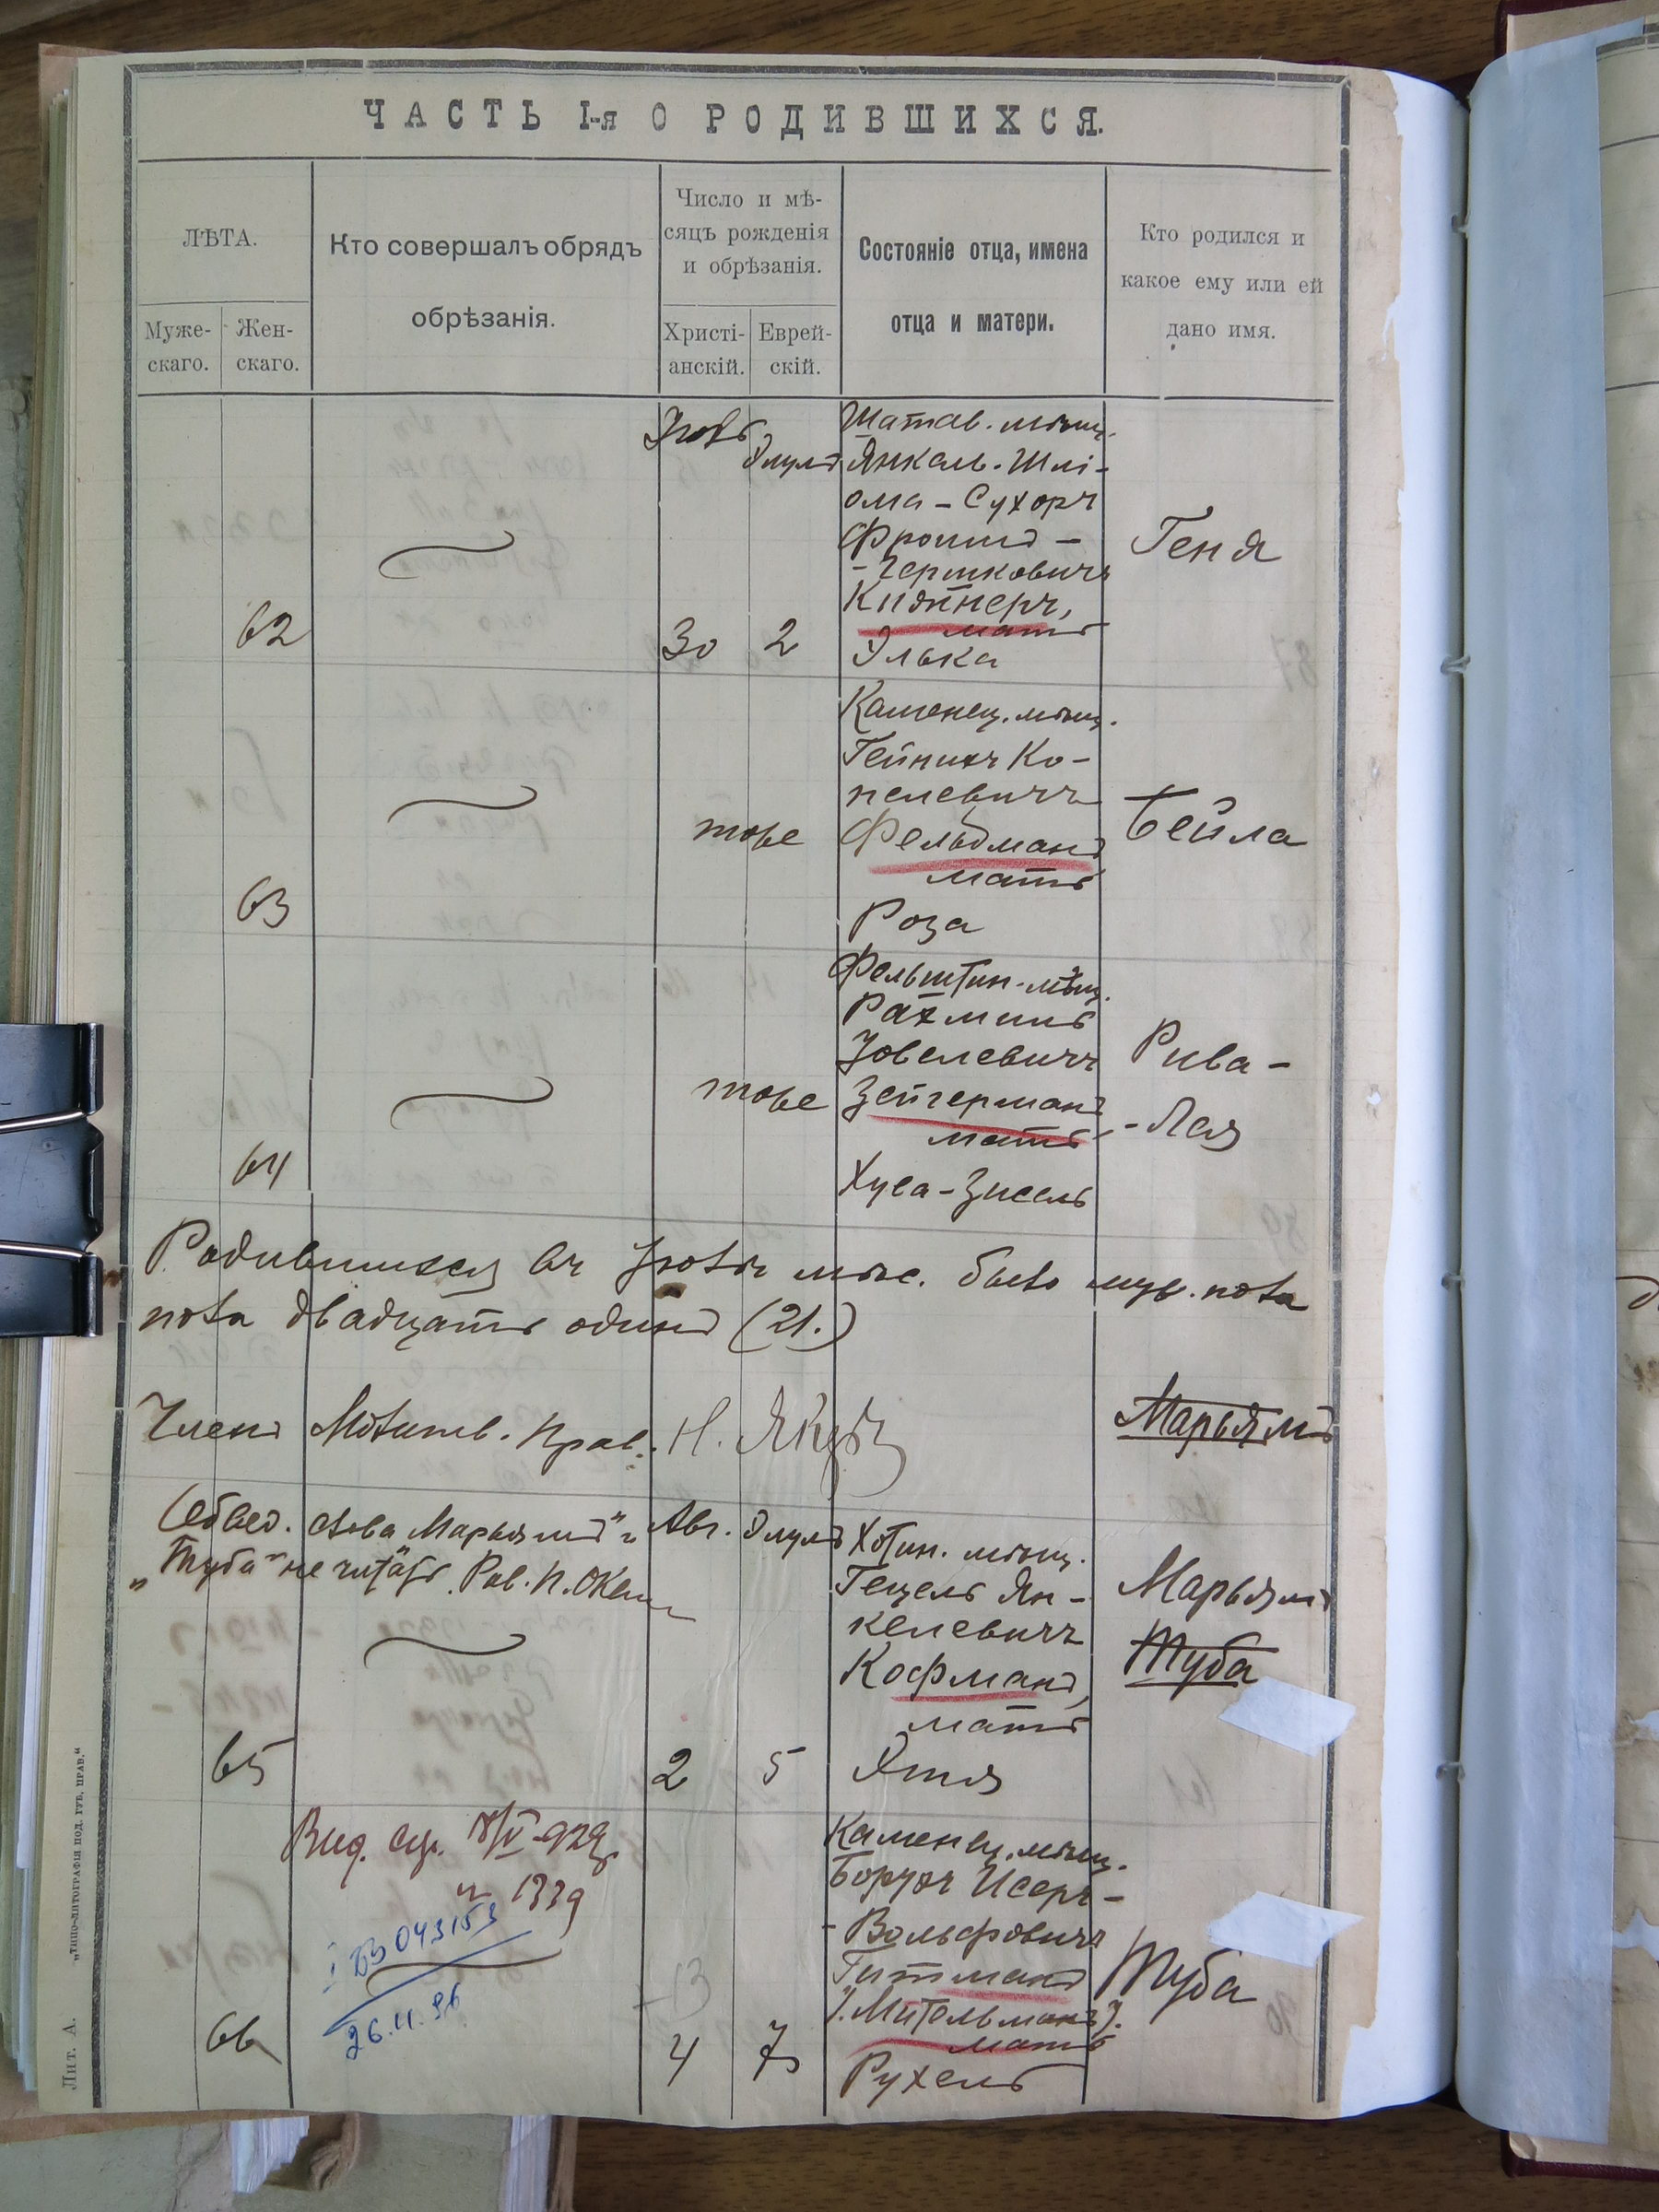 ЧАСТЬ I-я О РОДИВШИХСЯ.
ЛѢТА.
Муже-
скаго.
Жен-
скаго.
Кто совершалъ обрядъ
обрѣзанія.
Число и мѣ-
сяцъ рожденія
и обрѣзанія.
Христі-
анскій.
Еврей-
скій.
Состояніе отца, имена
отца и матери.
Кто родился и
какое ему или ей
дано имя.
62
Іюль
30
Элулъ
2
Шатав. мѣщ.
Янкель-Шлі-
ома-Сухоръ
Фроимъ-
мать
Элька
Геня
63
тоже
Каменец. мѣщ.
Гейнихъ Ко-
пелевичъ
Фельдманъ
мать
Роза
Бейла
64
тоже
Фельштин. мѣщ.
Рахмиль
Іовелевичъ
Зейгерманъ
мать
Хуса-Зисель
Рива-
-Лея
Родившихся въ Іюлѣ мѣс. было муж. пола
пола двадцать одинъ (21.)
Членъ Молитв. Прав. Н.
Марьямъ
слова „Марьямъ" и
„Туба" не читать. Рав.
65
Авг.
2
Элулъ
5
Хотин. мѣщ.
Гецель Ян-
келевичъ
Кофманъ,
мать
Хая
Марьямъ
Туба
66
№ 1339
043153
26.11.96
4
7
Каменец. мѣщ.
Борухъ Исеръ-
-Вольфовичъ
Гитманъ
(Мительманъ).
мать
Рухель
Туба
Лит. А.
„ТИПО-ЛИТОГРАФІЯ ПОД. ГУБ. ПРАВ."